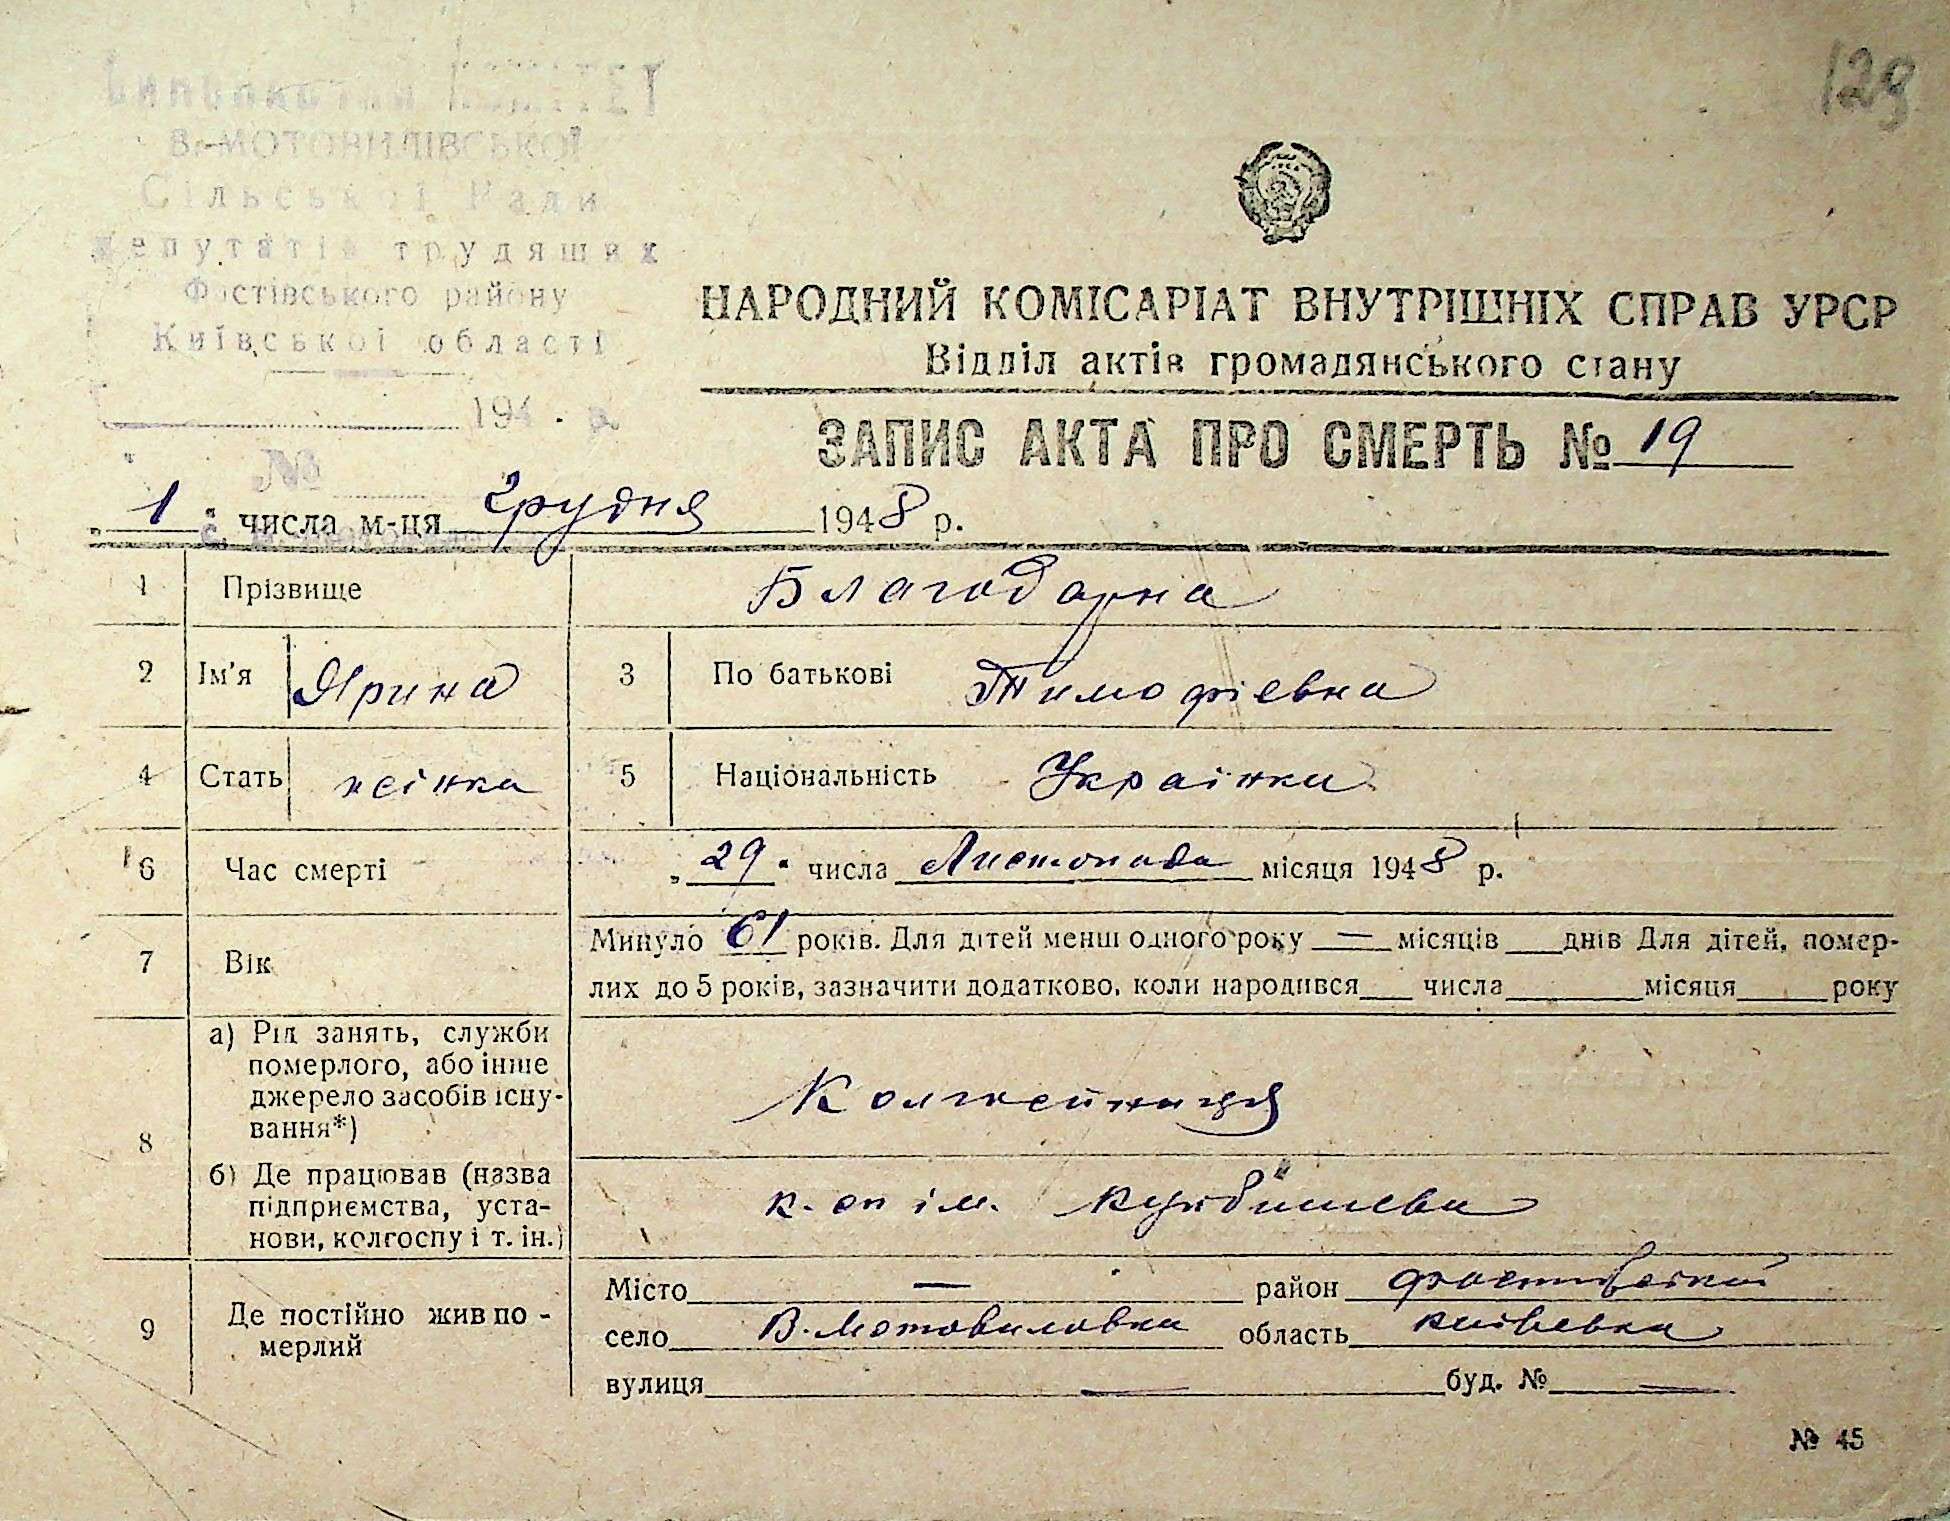 129
Виконавчий КОМІТЕТ
В.-МОТОВИЛІВСЬКОЇ
Сільської Ради
депутатів трудящих
Фастівського району
Київської області
194 р.
№
НАРОДНИЙ КОМІСАРІАТ ВНУТРІШНІХ СПРАВ УРСР
Відділ актів громадянського стану
ЗАПИС АКТА ПРО СМЕРТЬ № 19
„ 1 " числа м-ця грудня 1948 р.
1 Прізвище Благодарна
2 Ім'я Ярина 3 По батькові Тимофієвна
4 Стать жінка 5 Національність Украінка
6 Час смерті „ 29 " числа Листопада місяця 1948 р.
7 Вік Минуло 61 років. Для дітей менш одного року — місяців ___ днів Для дітей, помер-
лих до 5 років, зазначити додатково, коли народився___ числа______місяця_____року
8 а) Рід занять, служби
померлого, або інше
джерело засобів існу-
вання*)
Колгжейниця
б) Де працював (назва
підприємства, уста-
нови, колгоспу і т. ін.)
к. сп ім. Куйбишева
9 Де постійно жив по-
мерлий
Місто — район Фастівський
село В. Мотовиловка область Київська
вулиця — буд. № —
№ 45